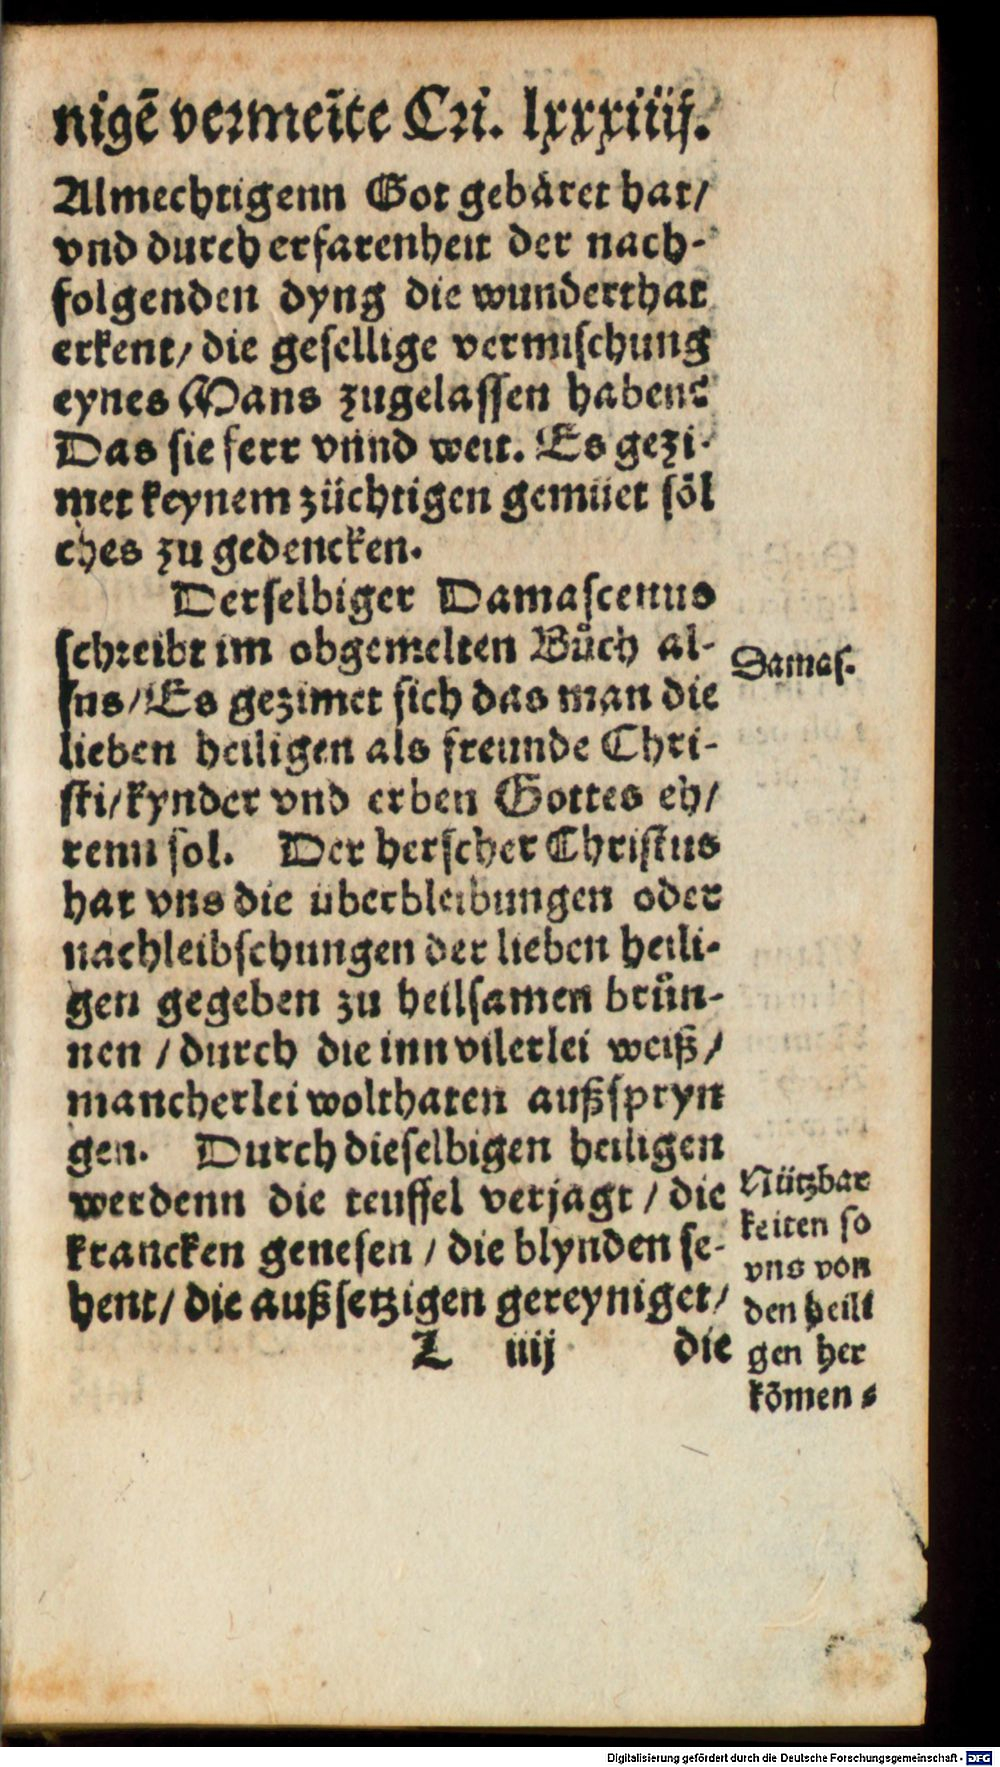 nigē vermeīte Cri. lxxxiiij.
Almechtigenn Got gebäret hat/
vnd durch erfarenheit der nach-
folgenden dyng die wunderthat
erkent/ die gesellige vermischung
eynes Mans zugelassen haben?
Das sie ferr vnnd weit. Es gezi-
met keynem züchtigen gemüet söl
ches zu gedencken.
Derselbiger Damascenus
schreibt im obgemelten Bůch al-
sus/ Es gezimet sich das man die
lieben heiligen als freunde Chri-
sti/ kynder vnd erben Gottes eh/
renn sol. Der herscher Christus
hat vns die uberbleibungen oder
nachleibschungen der lieben heili-
gen gegeben zu heilsamen brün-
nen / durch die inn vilerlei weiß/
mancherlei wolthaten außspryn
gen. Durch dieselbigen heiligen
werdenn die teuffel verjagt / die
krancken genesen / die blynden se-
hent/ die außsetzigen gereyniget/
L iiij die
Damas.
Nützbar
keiten so
vns von
den heili
gen her
kōmen
Digitalisierung gefördert durch die Deutsche Forschungsgemeinschaft - DFG